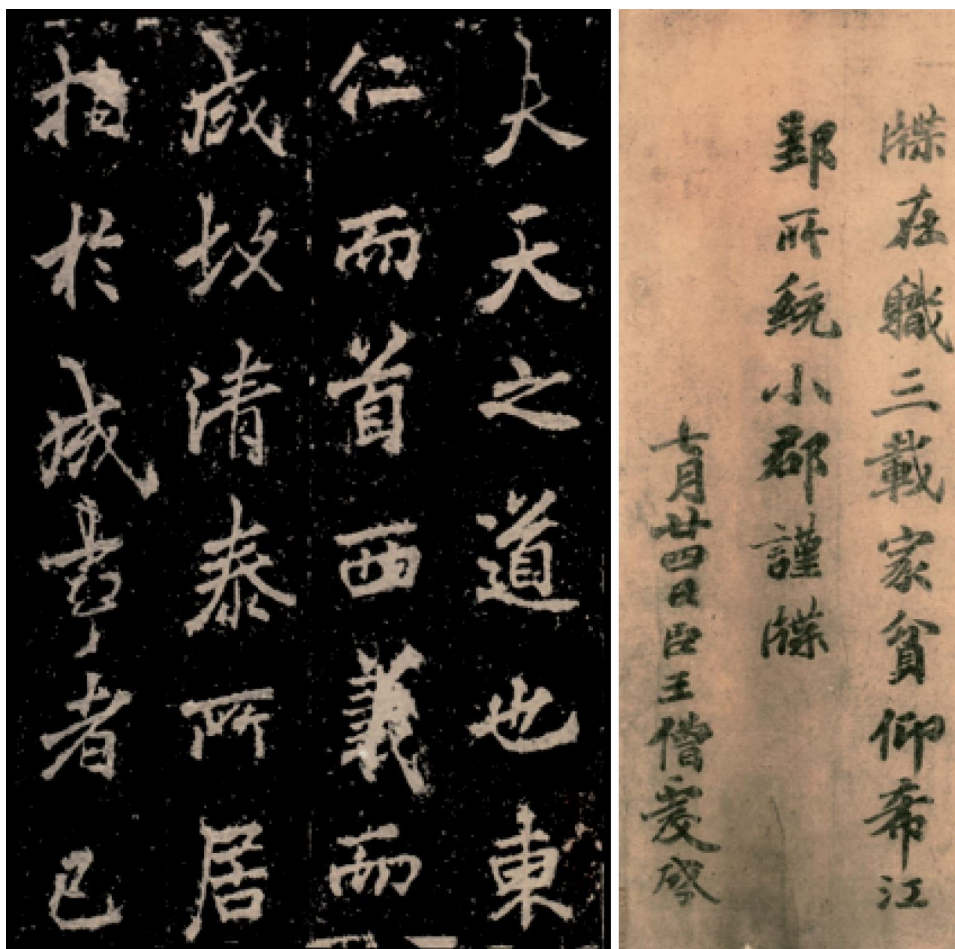 夫天之道也東
仁而首西義而
成故清泰所居
指於成事者已
牒在職三載家貧仰希江
郢所統小郡謹牒
七月廿四日臣王僧虔啓